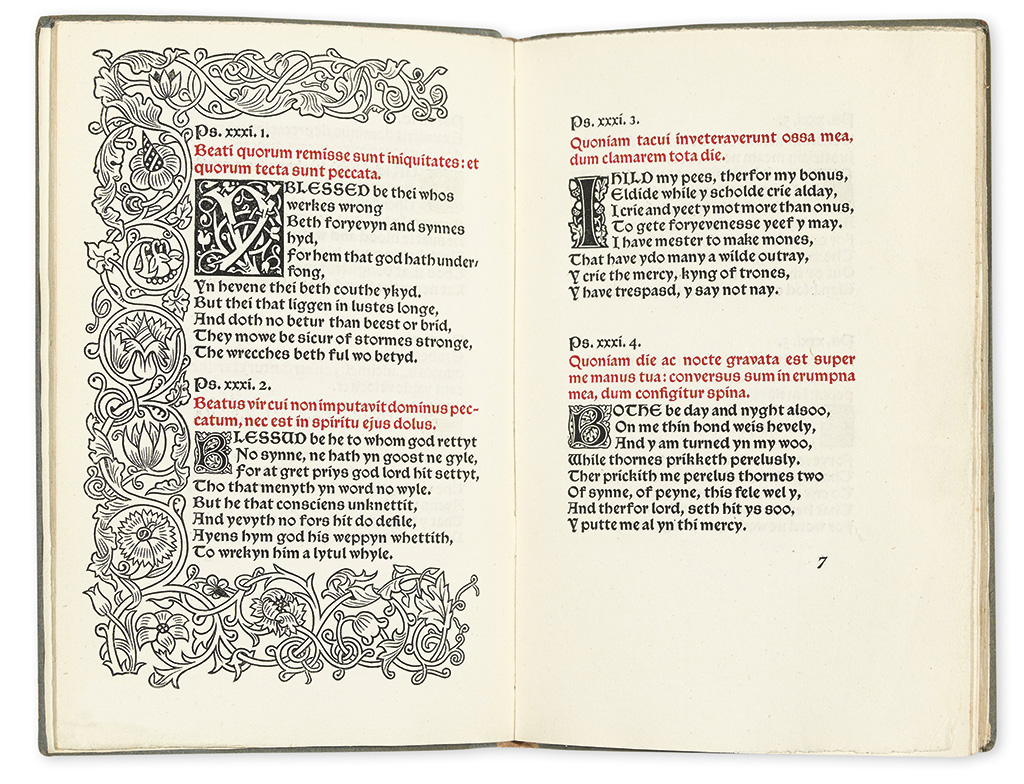 Ps. xxxi. 1.
Beati quorum remisse sunt iniquitates: et
quorum tecta sunt peccata.
YBLESSED be thei whos
werkes wrong
Beth foryevyn and synnes
hyd,
For hem that god hath under-
fong,
Yn hevene thei beth couthe ykyd.
But thei that liggen in lustes longe,
And doth no betur than beest or brid,
They mowe be sicur of stormes stronge,
The wrecches beth ful wo betyd.
Ps. xxxi. 2.
Beatus vir cui non imputavit dominus pec-
catum, nec est in spiritu ejus dolus.
BLESSUD be he to whom god rettyt
No synne, ne hath yn goost ne gyle,
For at gret priys god lord hit settyt,
Tho that menyth yn word no wyle.
But he that consciens unknettit,
And yevyth no fors hit do defile,
Ayens hym god his weppyn whettith,
To wrekyn him a lytul whyle.
Ps. xxxi. 3.
Quoniam tacui inveteraverunt ossa mea,
dum clamarem tota die.
I HILD my pees, therfor my bonus,
Eldide while y scholde crie alday,
I crie and yeet y mot more than onus,
To gete foryevenesse yeef y may.
I have mester to make mones,
That have ydo many a wilde outray,
Y crie the mercy, kyng of trones,
Y have trespasd, y say not nay.
Ps. xxxi. 4.
Quoniam die ac nocte gravata est super
me manus tua: conversus sum in erumpna
mea, dum configitur spina.
BOTHE be day and nyght alsoo,
On me thin hond weis hevely,
And y am turned yn my woo,
While thornes prikketh perelusly.
Ther prickith me perelus thornes two
Of synne, of peyne, this fele wel y,
And therfor lord, seth hit ys soo,
Y putte me al yn thi mercy.
7